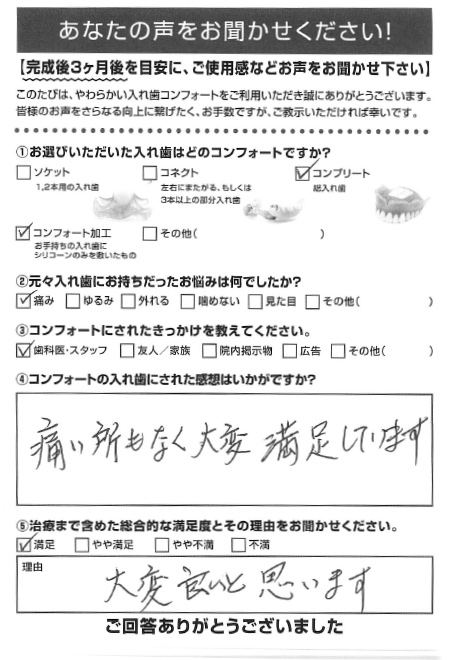 あなたの声をお聞かせください!
【完成後3ヶ月後を目安に、ご使用感などお声をお聞かせ下さい】
このたびは、やわらかい入れ歯コンフォートをご利用いただき誠にありがとうございます。
皆様のお声をさらなる向上に繋げたく、お手数ですが、ご教示いただければ幸いです。
①お選びいただいた入れ歯はどのコンフォートですか?
□ソケット □コネクト ☑コンプリート
1,2本用の入れ歯 左右にまたがる、もしくは 総入れ歯
3本以上の部分入れ歯
☑コンフォート加工 □その他( )
お手持ちの入れ歯に
シリコーンのみを敷いたもの
②元々入れ歯にお持ちだったお悩みは何でしたか?
☑痛み □ゆるみ □外れる □噛めない □見た目 □その他( )
③コンフォートにされたきっかけを教えてください。
☑歯科医・スタッフ □友人/家族 □院内掲示物 □広告 □その他( )
④コンフォートの入れ歯にされた感想はいかがですか?
痛い所もなく大変満足しています
⑤治療まで含めた総合的な満足度とその理由をお聞かせください。
☑満足 □やや満足 □やや不満 □不満
理由
大変良いと思います
ご回答ありがとうございました